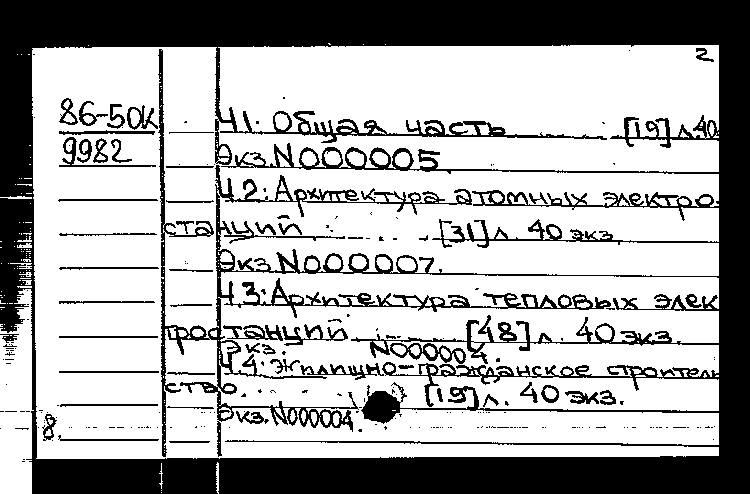 2
86-50К Ч1: Общая часть [19] л 40
9982 Экз. N000005
Ч.2: Архитектура атомных электро-
станций [31] л. 40 экз.
Экз. N000007.
Ч.3: Архитектура тепловых элек
тростанций [48] л. 40 экз.
Экз. N000004.
Ч.4: Жилищно-гражданское строитель
ство [19] л. 40 экз.
Экз. N000004.
8.